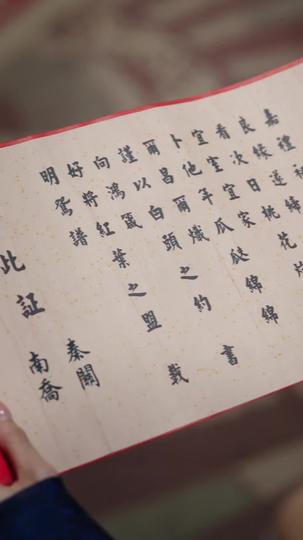 嘉禮
良緣遂締
看次日桃花
宜室宜家
卜他年瓜瓞綿綿
爾昌爾熾
謹以白頭之約 書
向鴻箋
好將紅葉之盟 載
明鴛譜
此証
秦關
南喬